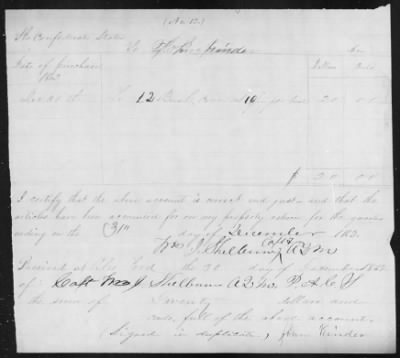 (No 12.)
The Confederate States
To
Date of purchase
1862
Dollars Cents
Dec 20 th To 12 Bush 20 00
$ 20 00
I certify that the above account is correct and just and that the
articles have been accounted for on my property return for the quarter
ending on the 31st day of December 1862.
Wm J. Shelburn Capt & A.Q.M
Received at the 20 day of December 1862
of Capt Wm J Shelburn A.Q.M. P.A.C.S
the sum of Twenty dollars and
cents, full of the above account.
Signed in duplicate, Kinder